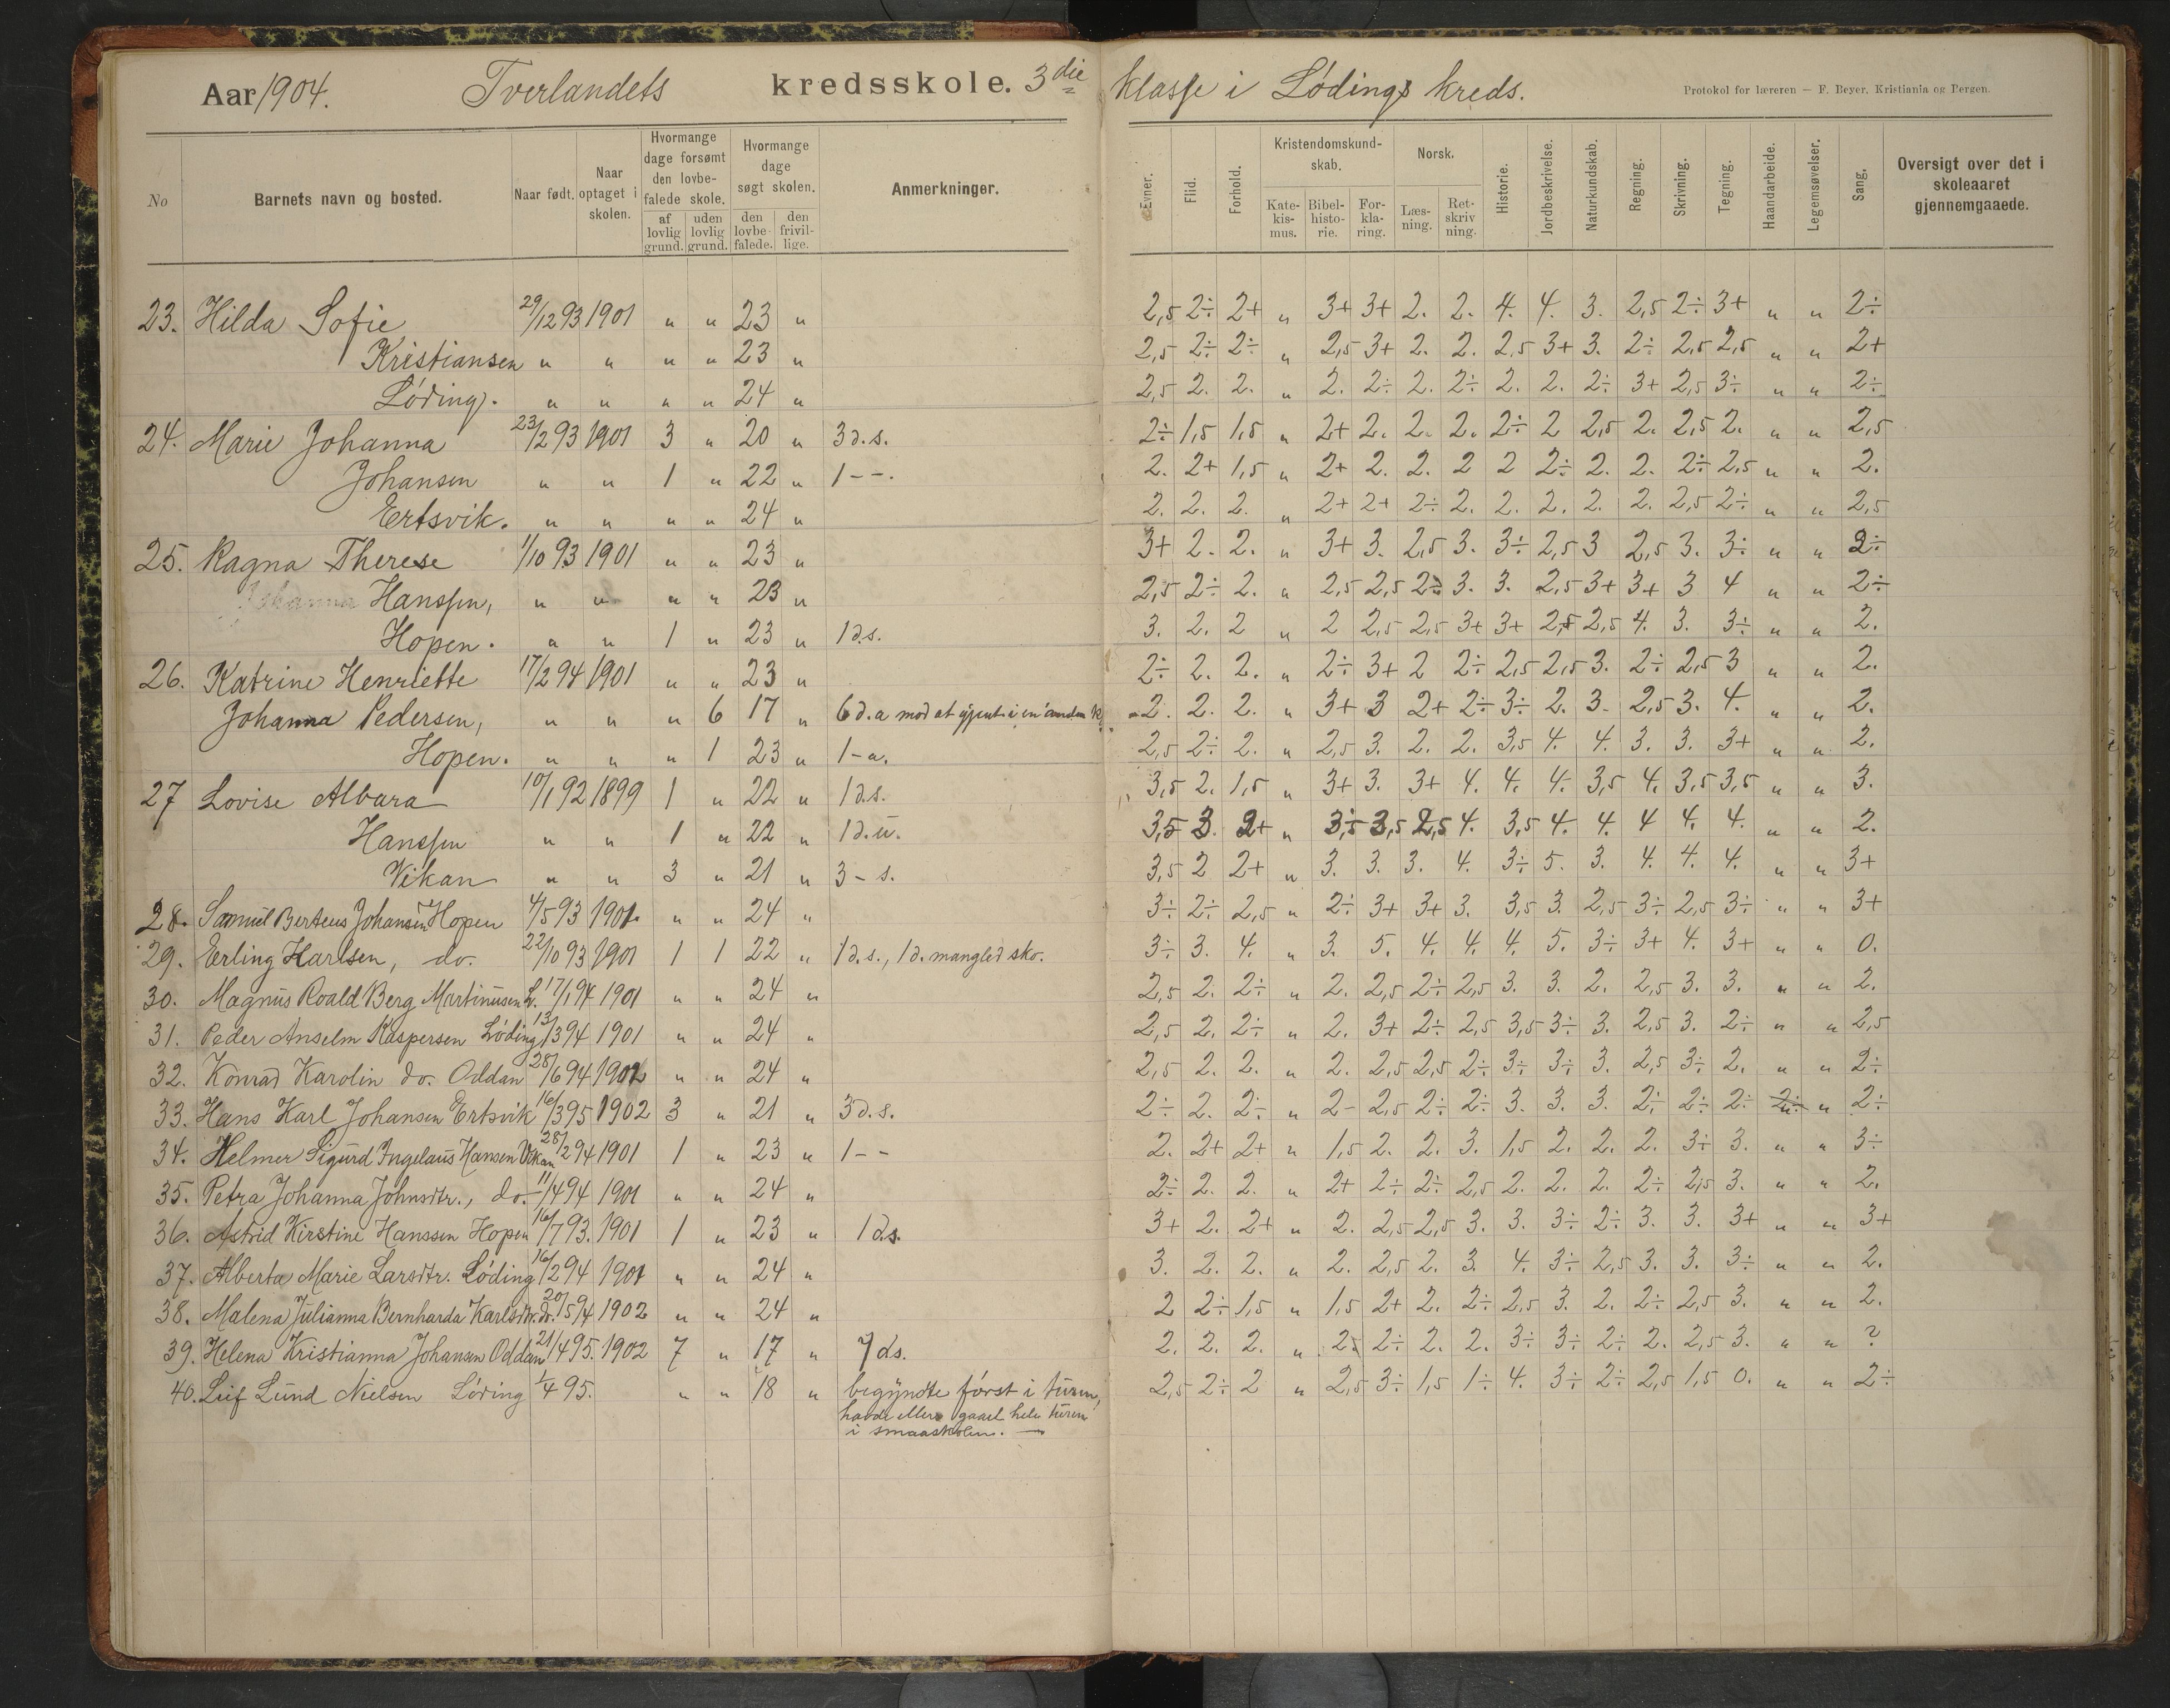 Aar 1904. Tverlandets kredsskole. 3die klasse i Lødings kreds.
Protokol for læreren — F. Beyer. Kristiania og Bergen.
No Barnets navn og bosted. Naar født. Naar optaget i skolen. Hvormange dage forsømt den lovbefalede skole. af lovlig grund. uden lovlig grund. Hvormange dage søgt skolen. den lovbefalede. den frivillige. Anmerkninger. Evner. Flid. Forhold. Kristendomskundskab. Katekismus. Bibelhistorie. Forklaring. Norsk. Læsning. Retskrivning. Historie. Jordbeskrivelse. Naturkundskab. Regning. Skrivning. Tegning. Haandarbeide. Legemsøvelser. Sang. Oversigt over det i skoleaaret gjennemgaaede.
23. Hilda Sofie 29/12 93 1901 " " 23 " 2,5 2÷ 2+ " 3+ 3+ 2. 2. 4. 4. 3. 2,5 2÷ 3+ " " 2÷
Kristiansen " " " " 23 " 2,5 2÷ 2÷ " 2,5 3+ 2. 2. 2,5 3+ 3. 2÷ 2,5 2,5 " " 2+
Løding. " " " " 24 " 2,5 2. 2. " 2. 2÷ 2. 2÷ 2. 2. 2÷ 3+ 2,5 3÷ " " 2÷
24. Marie Johanna 23/2 93 1901 3 " 20 " 3 d.s. 2÷ 1,5 1,5 " 2+ 2. 2. 2. 2÷ 2 2,5 2. 2,5 2. " " 2,5
Johansen " " 1 " 22 " 1 - -. 2. 2+ 1,5 " 2+ 2. 2. 2 2 2÷ 2. 2. 2÷ 2,5 " " 2.
Ertsvik. " " " " 24 " 2. 2. 2. " 2+ 2+ 2÷ 2. 2. 2. 2. 2. 2,5 2÷ " " 2,5
25. Ragna Therese 1/10 93 1901 " " 23 " 3+ 2. 2. " 3+ 3. 2,5 3. 3÷ 2,5 3 2,5 3. 3÷ " " 2÷
Hanssen, " " " " 23 " 2,5 2÷ 2. " 2,5 2,5 2÷ 3. 3. 2,5 3+ 3+ 3 4 " " 2÷
Hopen. " " 1 " 23 " 1 d.s. 3. 2. 2 " 2 2,5 2,5 3+ 3+ 2,5 2,5 4. 3. 3÷ " " 2.
26. Katrine Henriette 17/2 94 1901 " " 23 " 2÷ 2. 2. " 2÷ 3+ 2 2÷ 2,5 2,5 3. 2÷ 2,5 3 " " 2.
Johanna Pedersen, " " " 6 17 " 6 d. a mod at i en anden k. 2. 2. 2. " 3+ 3 2+ 2÷ 3÷ 2. 3. 2,5 3. 4. " " 2.
Hopen. " " " 1 23 " 1 - u. 2,5 2÷ 2. " 2,5 3. 2. 2. 3,5 4. 4. 3. 3. 3+ " " 2.
27 Lovise Albara 10/1 92 1899 1 " 22 " 1 d.s. 3,5 2. 1,5 " 3+ 3. 3+ 4. 4. 4. 3,5 4. 3,5 3,5 " " 3.
Hanssen " " 1 " 22 " 1 d. u. 3,5 3. 2+ " 3,5 3,5 2,5 4. 3,5 4. 4. 4 4. 4. " " 2.
Vikan " " 3 " 21 " 3 - s. 3,5 2 2+ " 3. 3. 3. 4. 3÷ 5. 3. 4. 4. 4. " " 3+
28. Samuel Berteus Johansen Hopen 4/5 93 1901. " " 24 " 3÷ 2÷ 2,5 " 2÷ 3+ 3+ 3. 3,5 3. 2,5 3÷ 2,5 3÷ " " 3+
29. Erling Karlsen, do. 22/10 93 1901 1 1 22 " 1 d.s., 1 d. mangled sko. 3÷ 3. 4. " 3. 5. 4. 4. 4. 5. 3÷ 3+ 4. 3+ " " 0.
30. Magnus Roald Berg Martinusen L. 17/1 94 1901 " " 24 " 2,5 2. 2÷ " 2. 2,5 2÷ 2,5 3. 3. 2. 2,5 3. 3. " " 2.
31. Peder Anselm Kaspersen Løding 13/3 94 1901 " " 24 " 2,5 2. 2÷ " 2. 3+ 2÷ 2,5 3,5 3÷ 3. 2,5 3. 2÷ " " 2,5
32. Konrad Karolin do. Oddan 28/6 94 1902 " " 24 " 2,5 2. 2. " 2. 2,5 2,5 2÷ 3÷ 3÷ 3. 2,5 3÷ 2. " " 2÷
33. Hans Karl Johansen Ertsvik 16/3 95 1902 3 " 21 " 3 d.s. 2÷ 2. 2÷ " 2- 2,5 2÷ 2÷ 3. 3. 3. 2÷ 2÷ 2÷ 2÷ " 2÷
34. Helmer Sigurd Ingelaus Hansen Vikan 28/2 94 1901 1 " 23 " 1 - - 2. 2+ 2+ " 1,5 2. 2. 3. 1,5 2. 2. 2. 3÷ 3. " " 3÷
35. Petra Johanna Johnsdtr., do. 11/4 94 1901 " " 24 " 2÷ 2. 2. " 2+ 2÷ 2÷ 2,5 2. 2. 2. 2÷ 2,5 3. " " 2.
36. Astrid Kirstine Hanssen Hopen 16/7 93. 1901 1 " 23 " 1 d.s. 3+ 2. 2+ " 2. 2,5 2,5 3. 3. 3÷ 2÷ 3. 3. 3+ " " 3+
37. Alberta Marie Larsdtr. Løding 16/2 94 1901 " " 24 " 3. 2. 2. " 2. 2,5 2. 3. 4. 3÷ 2,5 3. 3. 3÷ " " 2.
38. Malena Julianna Bernharda Karlsdtr. do. 20/5 94 1902 " " 24 " 2 2÷ 1,5 " 1,5 2+ 2. 2÷ 2,5 3. 2. 2÷ 2,5 3. " " 2.
39. Helena Kristianna Johansen Oddan 21/4 95. 1902 7 " 17 " 7 d.s. 2. 2. 2. " 2÷ 2÷ 2. 2. 3÷ 3÷ 2÷ 2. 2,5 3. " " ?
40. Leif Lund Nielsen Løding 1/4 95. " " 18 " begyndte først i turen, 2,5 2÷ 2 " 2,5 3÷ 1,5 1÷ 4. 3÷ 2÷ 2,5 1,5 0. " " 2÷
havde ellers gaaet hele turen
i smaaskolen. —